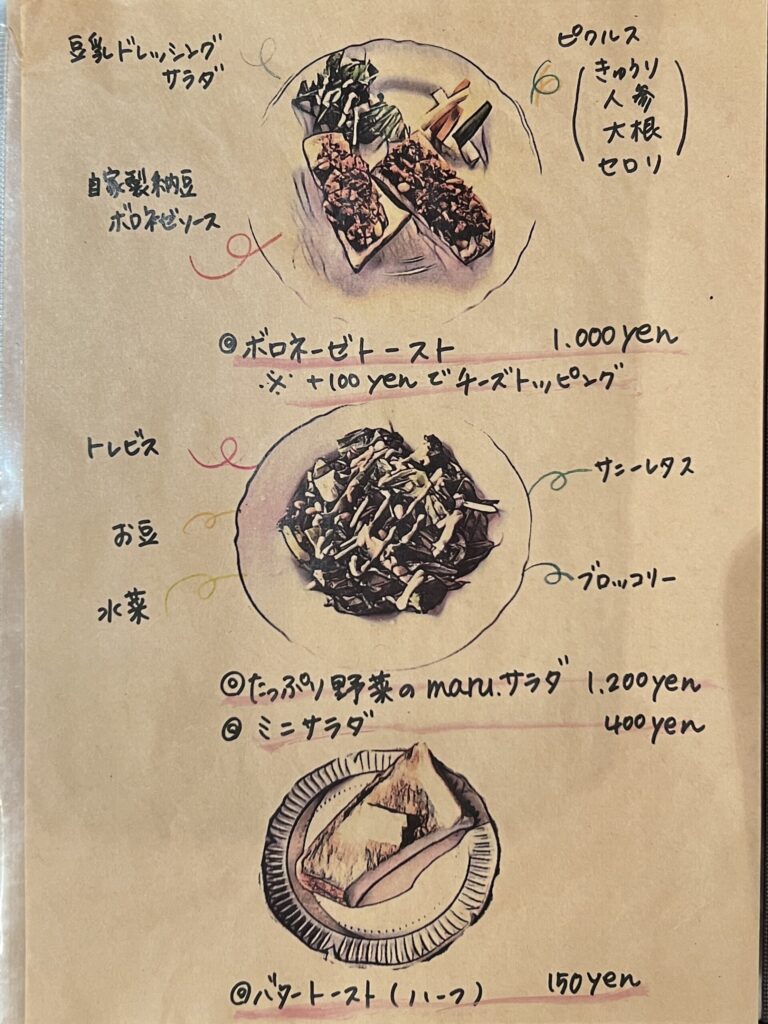 豆乳ドレッシング
サラダ
ピクルス
きゅうり
人参
大根
セロリ
自家製納豆
ボロネーゼソース
◎ボロネーゼトースト 1.000yen
※ +100yenでチーズトッピング
トレビス
サニーレタス
お豆
ブロッコリー
水菜
◎たっぷり野菜のmaru.サラダ 1.200yen
◎ミニサラダ 400yen
◎バタートースト(ハーフ) 150yen